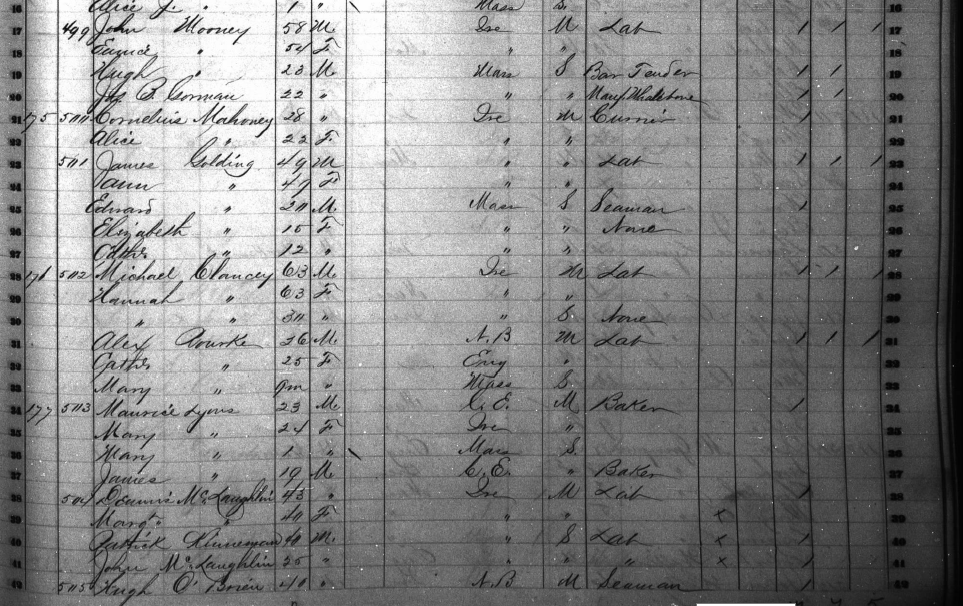 16 Alice J. " 1 " Mass S. 16
17 499 John Mooney 58 M Ire M Lab 1 1 1 17
18 " 54 F " " 18
19 Hugh " 23 M Mass S Bar Tender 1 1 19
20 Jas B. Gorman 22 " " " Manf Whalebone 1 1 20
21 175 500 Cornelius Mahoney 28 " Ire M Currier 1 21
22 Alice " 22 F " " 22
23 501 James Golding 49 M " " Lab 1 1 1 23
24 " 49 F " " 24
25 Edward " 20 M Mass S Seaman 1 25
26 Elizabeth " 15 F " " None 26
27 Cathe " 12 " " " 27
28 176 502 Michael Clancey 63 M Ire M Lab 1 1 1 28
29 Hannah " 63 F " " 29
30 " " 30 " " S. None 30
31 Alex Rourke 26 M. N.B M Lab 1 1 1 31
32 Cathe " 25 F Eng " 32
33 Mary " 9m " Mass S. 33
34 177 503 Maurice Lyons 23 M C.E. M Baker 1 34
35 Mary " 24 F Ire " 35
36 Mary " 1 " Mass S. 36
37 James " 19 M C.E. " Baker 37
38 504 Dennis McLaughlin 45 " Ire M Lab 1 38
39 Margt " 40 F " " x 39
40 Patrick Kinneman 40 M. " S Lab x 1 40
41 John McLaughlin 25 " " " " x 1 41
42 505 Hugh O'Brien 40 " N.B M Seaman 1 42